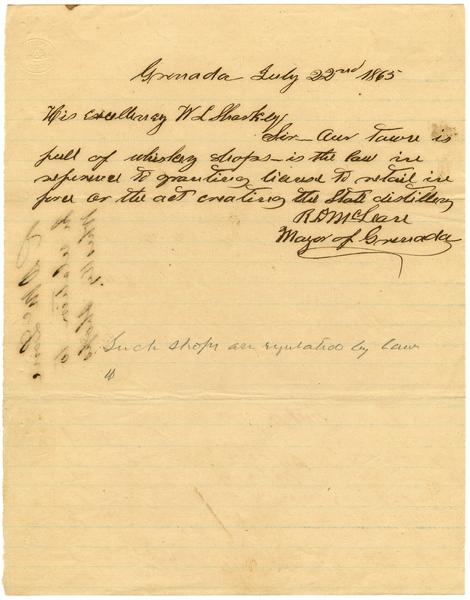 Grenada July 22nd 1865
His excellency W L Sharkey
Sir - Our town is
full of whiskey shops - is the law in
reference to granting license to retail in
force or the act creating the State distillery
R D McLean
Mayor of Grenada
Such shops are regulated by law